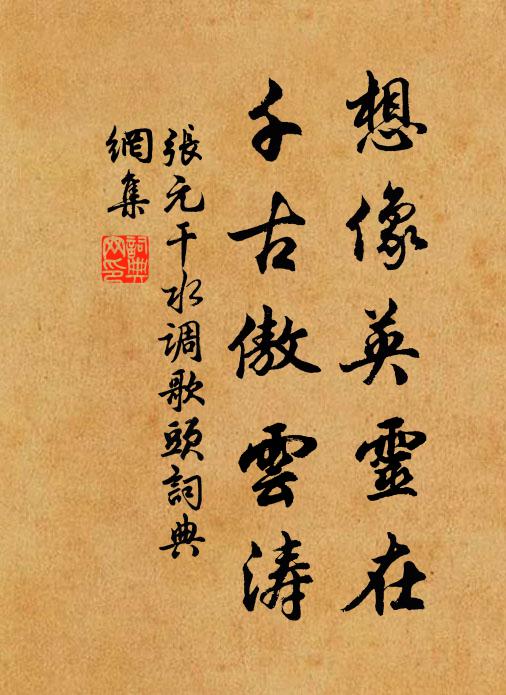 想像英靈在
千古傲雲涛
張元干水调歌頭詞典
網集
詞典
网印